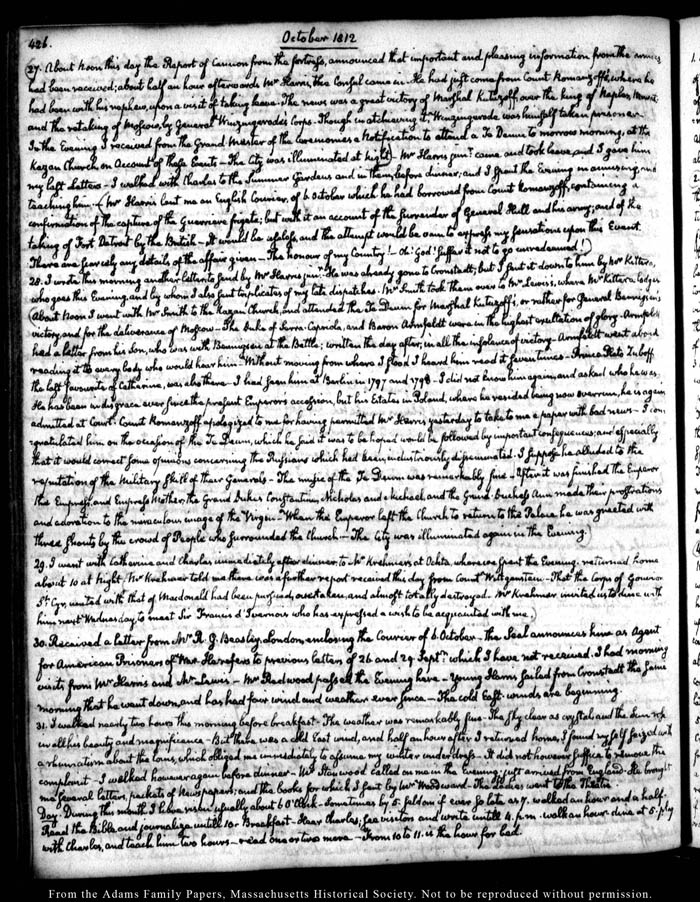 426.
October 1812
27. About Noon this day the Report of Cannon from the fortress, announced that important and pleasing information from the armies
had been received; about half an hour afterwards Mr Harris, the Consul came in. He had just come from Count Romanzoff's, where he
had been with his nephew, upon a visit of taking leave. The news was a great victory of Marshal Kutuzoff, over the King of Naples, Murat,
and the retaking of Moscow, by General Wintzingerode's Corps. Though in atchieving it Wintzingerode was himself taken prisoner.
In the Evening I received from the Grand Master of the Ceremonies a Notification to attend a Te Deum to morrow morning, at the
Kazan Church on Account of these Events — The City was illuminated at Night) — Mr Harris junr. came and took leave, and I gave him
my last Letters — I walked with Charles to the Summer Gardens and in them, before dinner; and I spent the Evening in amusing, and
teaching him. (Mr Harris lent me an English Courier, of 6 October which he had borrowed from Count Romanzoff, containing a
confirmation of the capture of the Guerriere frigate; but with it an account of the Surrender of General Hull and his army; and of the
taking of Fort Detroit by the British — It would be useless and the attempt would be vain to express my sensations upon this Event.
There are scarcely any details of the affair given — The honour of my Country! — Oh! God! suffer it not to go unredeemed!)
28. I wrote this morning another letter to send by Mr Harris junr. He was already gone to Cronstadt, but I sent it down to him by Mr Kitters,
who goes this Evening, and by whom I also sent triplicates of my late dispatches. Mr Smith took them over to Mr Lewis's, where Mr Kitters lodges
(About Noon I went with Mr Smith to the Kazan Church, and attended the Te Deum for Marshal Kutuzoff's, or rather for General Bennigsen's
victory, and for the deliverance of Moscow — The Duke of Serra-Capriola, and Baron Armfeldt were in the highest exultation of glory. Armfeldt
had a letter from his Son, who was with Bennigsen at the Battle; written the day after, in all the insolence of victory. Armfeldt went about
reading it to every body who would hear him. Without moving from where I stood I heard him read it seven times — Prince Plato Zuboff,
the last favourite of Catherine, was also there — I had seen him at Berlin in 1797 and 1798 — I did not know him again, and asked who he was.
He has been in disgrace ever since the present Emperor's accession, but his Estates in Poland, where he resided being now overrun, he is again
admitted at Court. Count Romanzoff apologized to me for having permitted Mr Harris yesterday to take to me a paper with bad news — I con-
gratulated him on the occasion of the Te Deum, which he said it was to be hoped would be followed by important consequences; and especially
that it would correct some opinions concerning the Russians which had been industriously disseminated. I suppose he alluded to the
reputation of the Military Skill of their Generals — The music of the Te Deum was remarkably fine — After it was finished the Emperor
the Empress, and Empress Mother, the Grand Dukes Constantine, Nicholas and Michael, and the Grand Duchess Ann made their prostrations
and adoration to the miraculous image of the Virgin — When the Emperor left the Church to return to the Palace he was greeted with
three shouts by the crowd of People who surrounded the Church — The City was illuminated again in the Evening.)
29. I went with Catherine and Charles immediately after dinner to Mr Krehmer's at Ochta, where we spent the Evening. returned home
about 10 at Night. Mr Krehmer told me there was a further report received this day from Count Wittgenstein — That the Corps of Gouvion
St. Cyr, united with that of Macdonald had been pursued, overtaken, and almost totally destroyed. Mr Krehmer invited us to dine with
him next Wednesday, to meet Sir Francis d'Ivernois who has expressed a wish to be acquainted with me.
30. Received a letter from Mr R. G. Beasley, London, enclosing the Courier of 6 October — the Seal announces him as Agent
for American Prisoners of War. He refers to previous letters of 26 and 29 Septr. which I have not received. I had morning
visits from Mr Harris and Mr Lewis — Mr Redwood passed the Evening here — Young Harris sailed from Cronstadt the same
morning that he went down, and has had fair wind and weather ever since — The cold East winds are beginning.
31. I walked nearly two hours this morning before breakfast — The weather was remarkably fine — The sky clear as crystal, and the Sun rose
in all his beauty and magnificence — But there was a cold East wind, and half an hour after I returned home, I found myself seized with
a rheumatism about the loins, which obliged me immediately to assume my winter under dress — It did not however suffice to remove the
complaint — I walked however again before dinner — Mr Haywood called on me in the Evening, just arrived from England. He brought
me several letters, packets of Newspapers, and the books for which I sent by Mr Woodward. The Ladies went to the Theatre.
Day. During this month I have risen usually about 6 O'Clock — sometimes by 5. seldom if ever so late as 7. walked an hour and a half.
Read the Bible and journalize untill 10. Breakfast. Hear Charles; see visitors and write untill 4. p.m. walk an hour. dine at 5. play
with Charles, and teach him two hours — read one or two more — From 10 to 11. is the hour for bed.
From the Adams Family Papers, Massachusetts Historical Society. Not to be reproduced without permission.